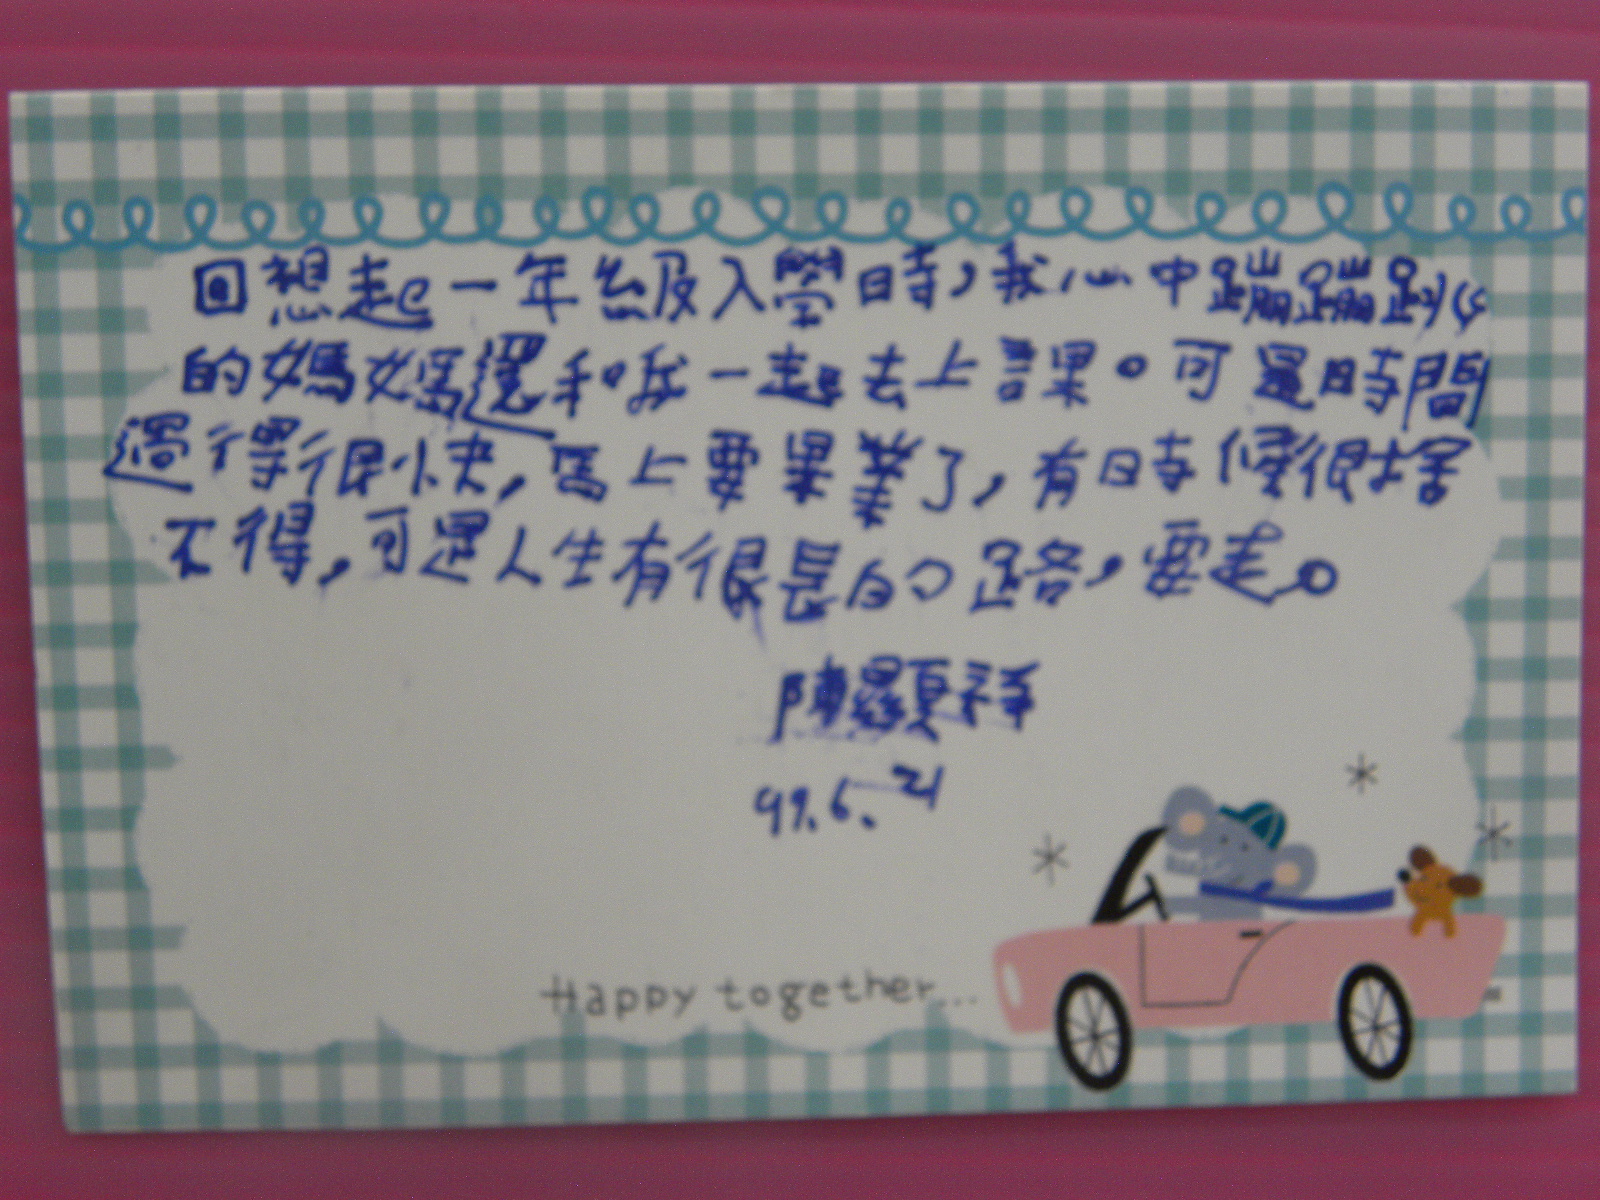 回想起一年級入學時，我心中蹦蹦跳
的媽媽還和我一起去上課。可是時間
過得很快，馬上要畢業了，有時候很捨
不得，可是人生有很長的路，要走。
陳顯祥
99.6.21
Happy together...